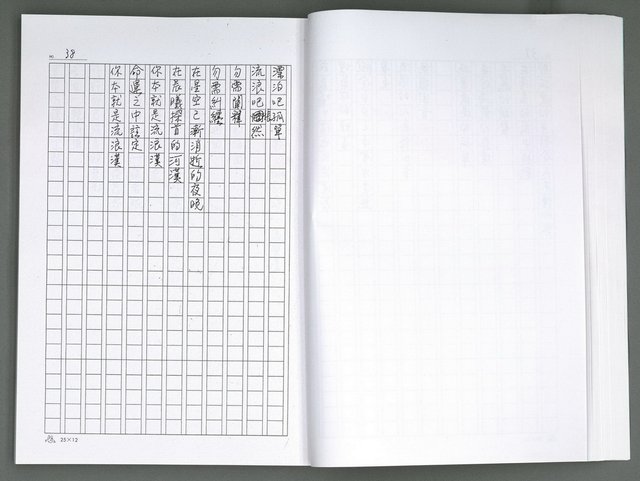 NO. 38
漂泊吧孤單
流浪吧悵然
勿需闡釋
勿需糾纏
在星空已漸消逝的夜晚
在晨曦探首的河漢
你本就是流浪漢
命運之中註定
你本就是流浪漢
25×12